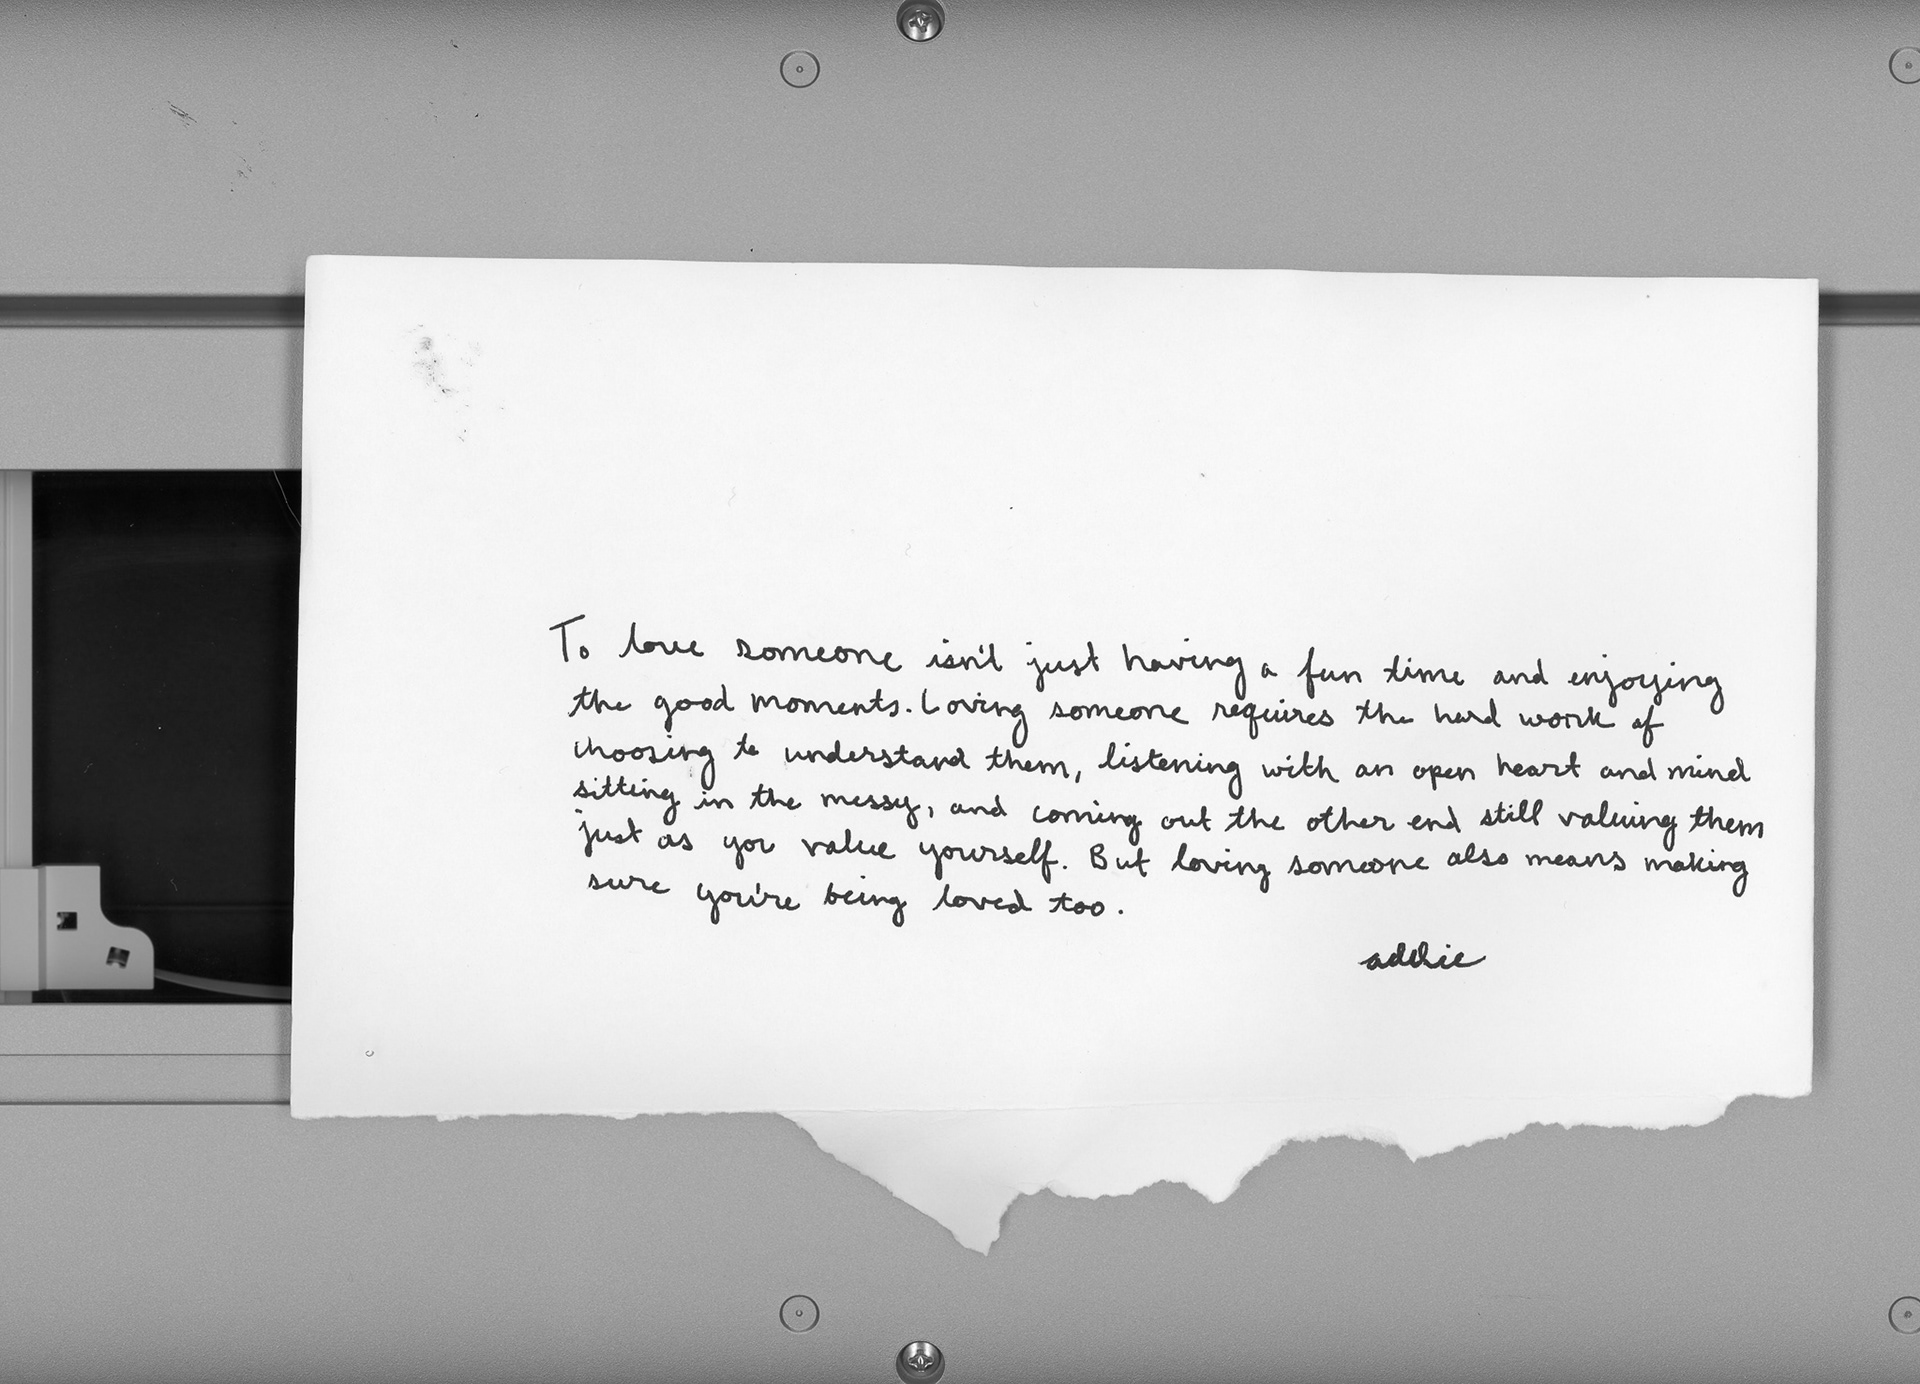 To love someone isn't just having a fun time and enjoying
the good moments. Loving someone requires the hard work of
choosing to understand them, listening with an open heart and mind
sitting in the messy, and coming out the other end still valuing them
just as you value yourself. But loving someone also means making
sure you're being loved too.
addie